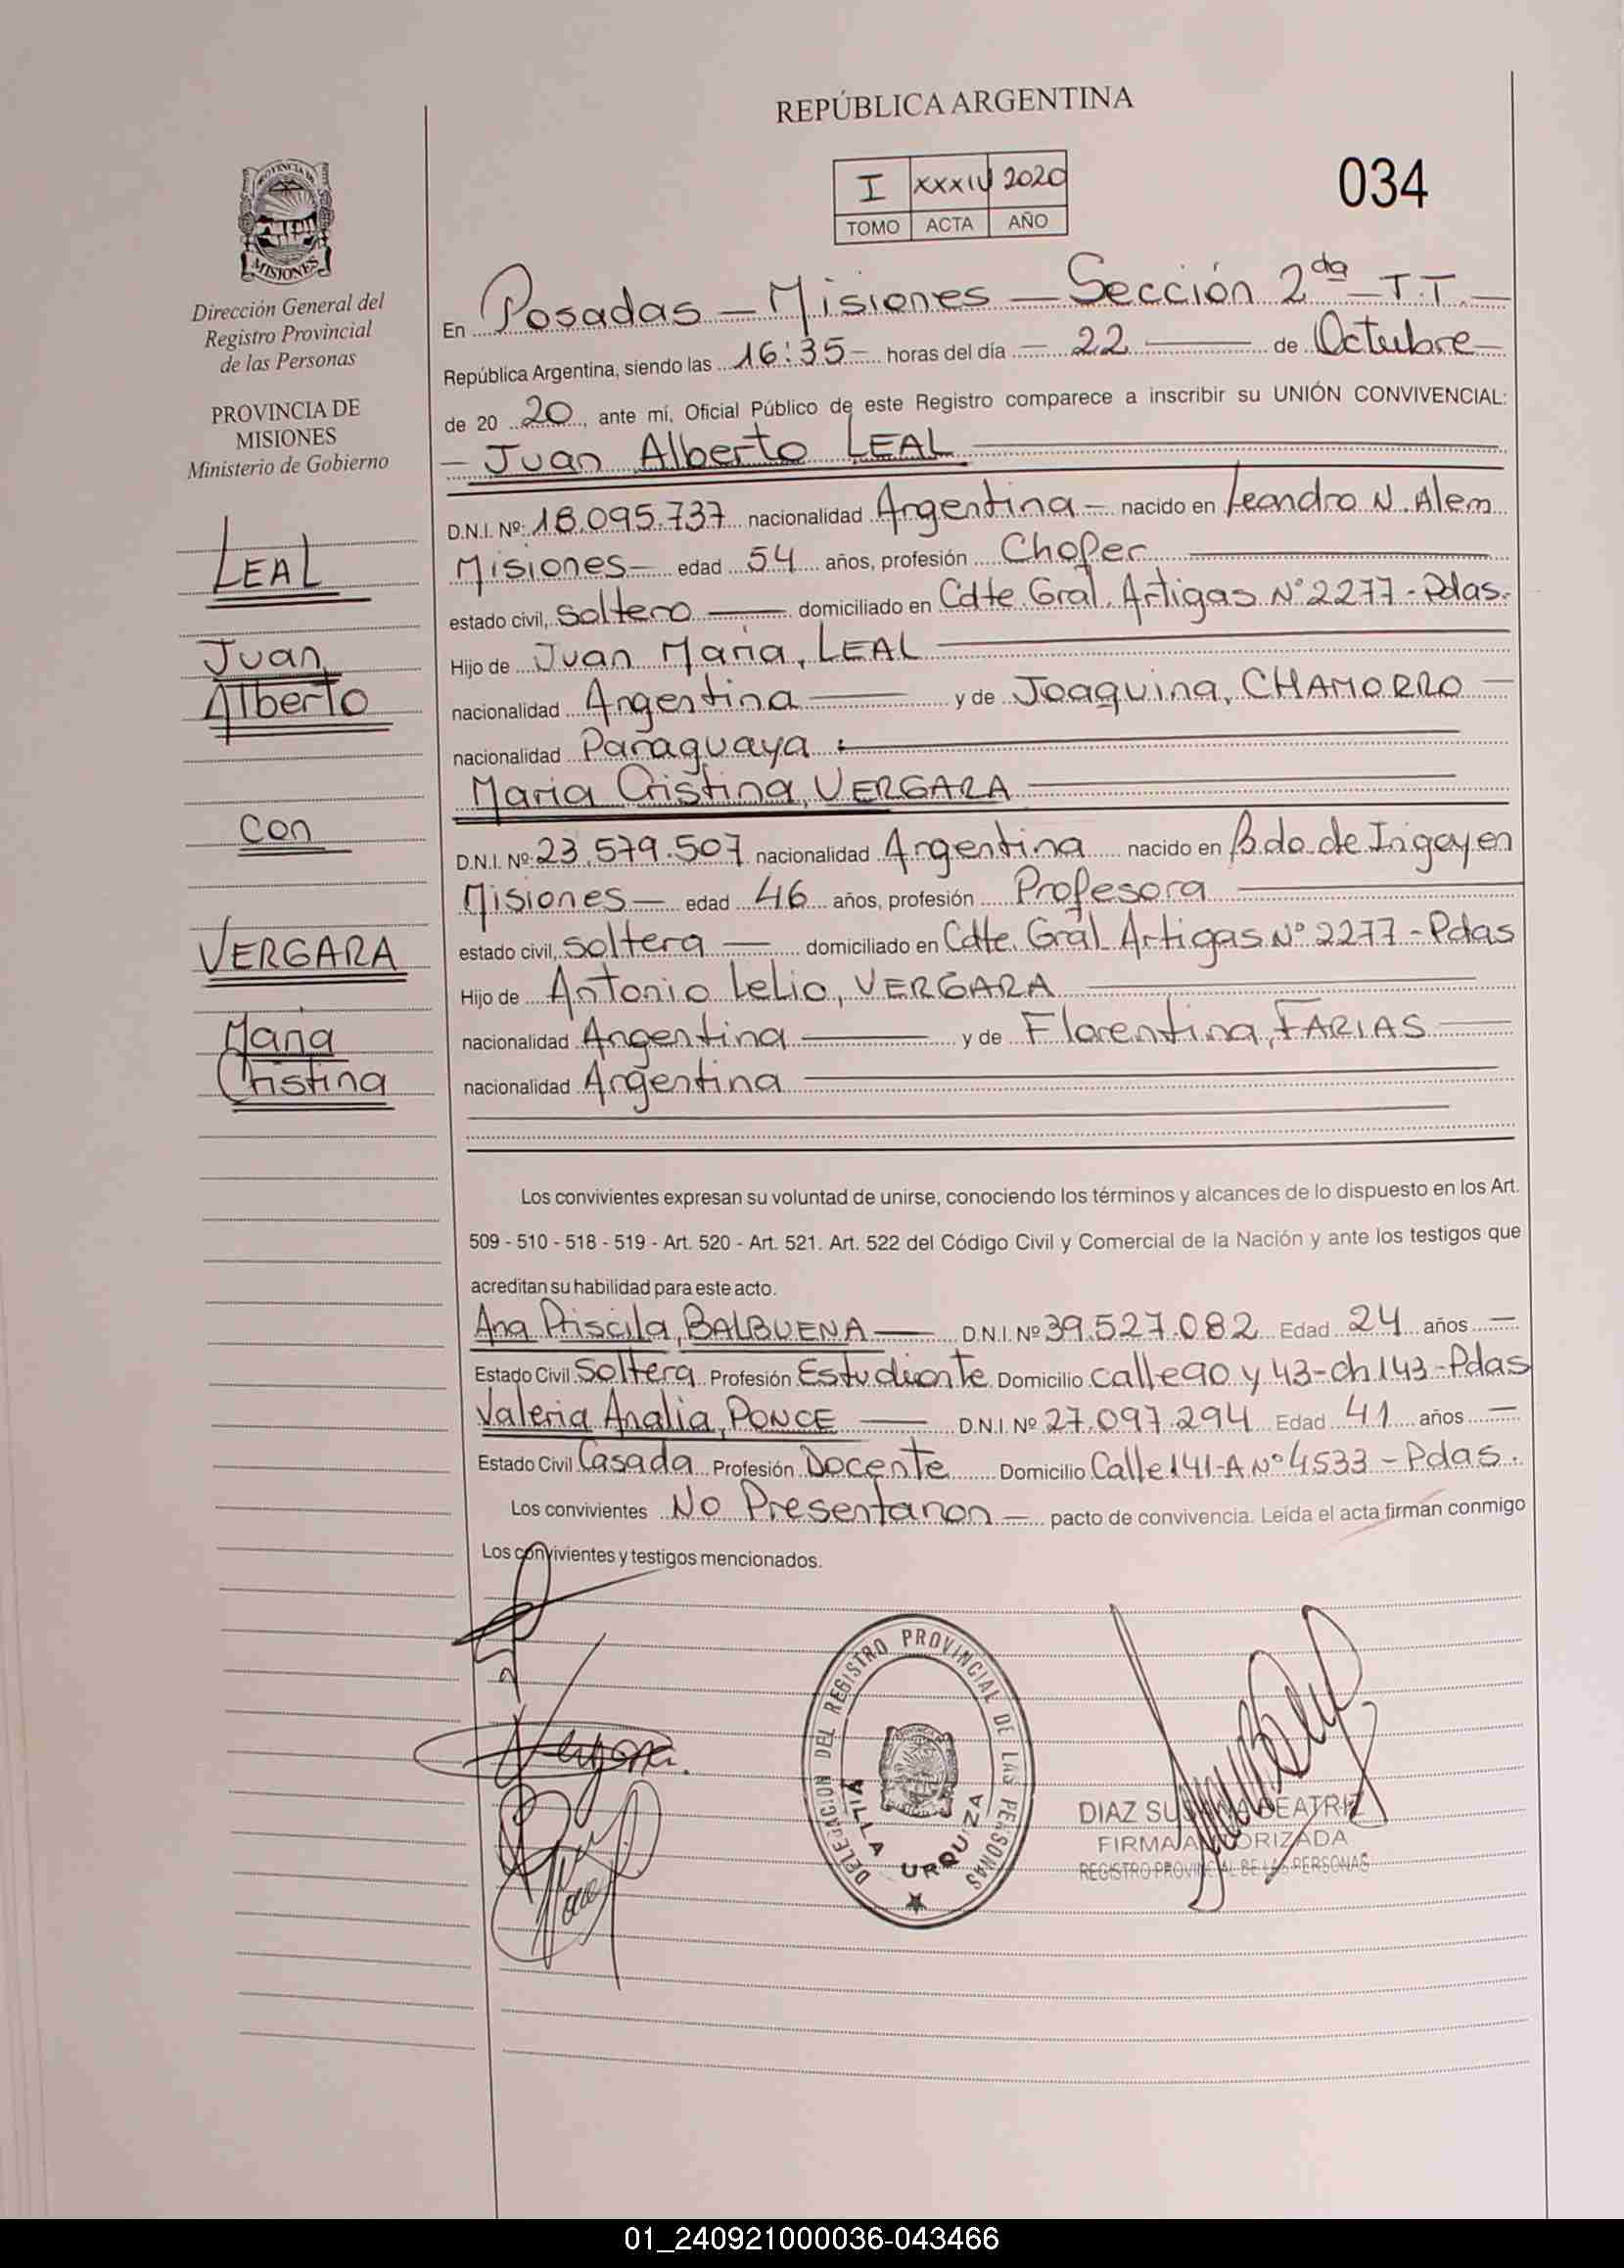 REPÚBLICA ARGENTINA
I XXXIV 2020
TOMO ACTA AÑO
034
PROVINCIA DE
MISIONES
Dirección General del
Registro Provincial
de las Personas
PROVINCIA DE
MISIONES
Ministerio de Gobierno
LEAL
Juan
Alberto
con
VERGARA
Maria
Cristina
En Posadas - Misiones - Sección 2da - T.T. -
República Argentina, siendo las 16:35 - horas del día - 22 - de Octubre -
de 20 20, ante mí, Oficial Público de este Registro comparece a inscribir su UNIÓN CONVIVENCIAL:
- Juan Alberto LEAL
D.N.I. Nº: 18.095.737 nacionalidad Argentina - nacido en Leandro N. Alem
Misiones - edad 54 años, profesión Chofer
estado civil, Soltero - domiciliado en Cdte. Gral. Artigas Nº 2277 - Pdas.
Hijo de Juan Maria, LEAL
nacionalidad Argentina - y de Joaquina, CHAMORRO -
nacionalidad Paraguaya.
Maria Cristina, VERGARA
D.N.I. Nº: 23.579.507 nacionalidad Argentina nacido en Bdo. de Irigoyen
Misiones - edad 46 años, profesión Profesora
estado civil, Soltera - domiciliado en Cdte. Gral Artigas Nº 2277 - Pdas
Hijo de Antonio Lelio, VERGARA
nacionalidad Argentina - y de Florentina, FARIAS -
nacionalidad Argentina
Los convivientes expresan su voluntad de unirse, conociendo los términos y alcances de lo dispuesto en los Art.
509 - 510 - 518 - 519 - Art. 520 - Art. 521. Art. 522 del Código Civil y Comercial de la Nación y ante los testigos que
acreditan su habilidad para este acto.
Ana Priscila, BALBUENA - D.N.I. Nº 39.527.082 Edad 24 años -
Estado Civil Soltera Profesión Estudiante Domicilio calle 90 y 43 - ch 143 - Pdas
Valeria Analia, PONCE - D.N.I. Nº 27.097.294 Edad 41 años -
Estado Civil Casada Profesión Docente Domicilio Calle 141-A Nº 4533 - Pdas.
Los convivientes No Presentaron - pacto de convivencia. Leída el acta firman conmigo
Los convivientes y testigos mencionados.
DELEGACION DEL REGISTRO PROVINCIAL DE LAS PERSONAS
VILLA URQUIZA
DIAZ SUSANA BEATRIZ
FIRMA AUTORIZADA
REGISTRO PROVINCIAL DE LAS PERSONAS
01_240921000036-043466